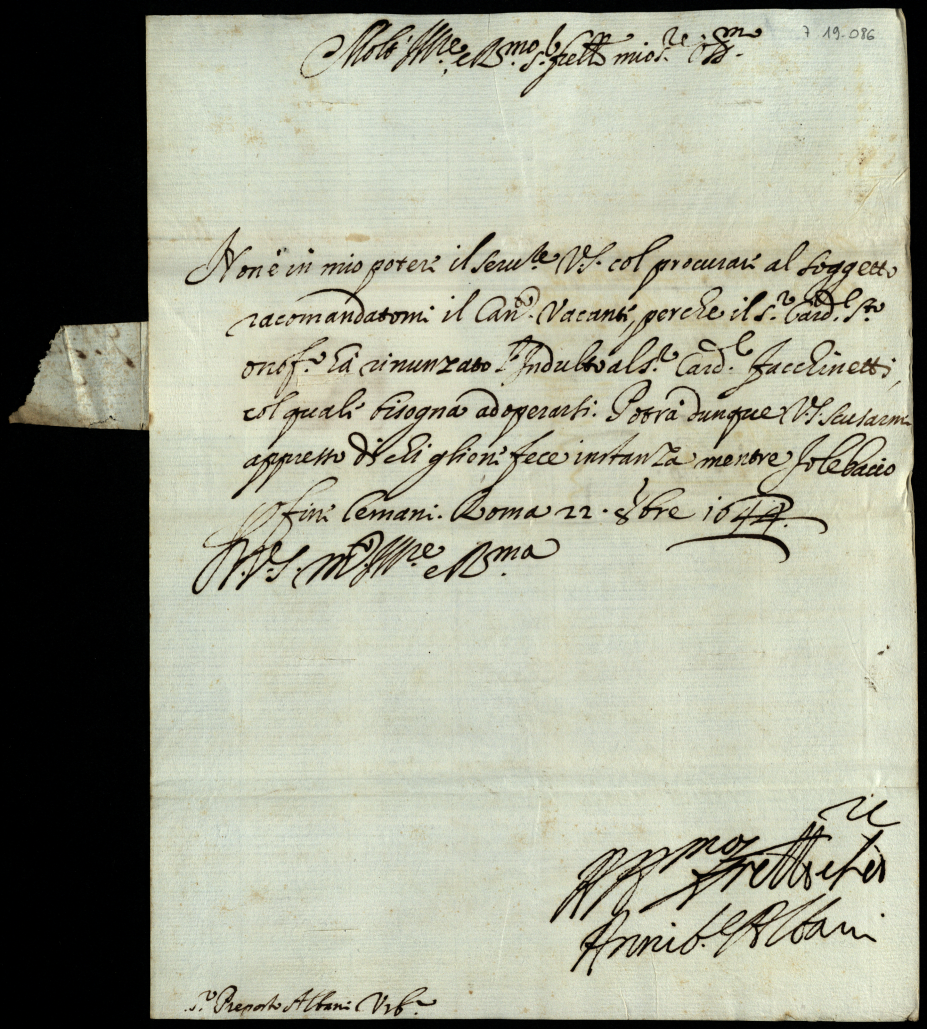 7 19-086
Molt' Ill.re e R.mo s.r fratello mio s.re Oss.mo
Non è in mio potere il seruire V.S. col procurare al soggetto
racomandatomi il Can.to Vacante, perche il s.r Card.l S.to
onof.o hà rinunzato l'Indulto al s.r Card.l Facchinetti,
col quale bisogna adoperarsi. Potrà dunque V.S. scusarmi
appresso di chi gliene fece instanza mentre Io le bacio
fine le mani. Roma 22. 8bre 1644.
D. V.S. M.to Ill.re e R.ma
Aff.mo fratello e ser.re
Annib.e Albani
s.r Preposto Albani Urb.o